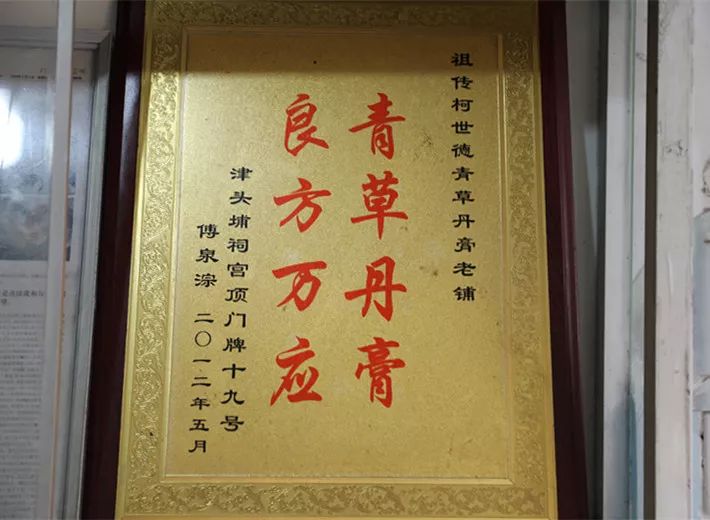 祖传柯世德青草丹膏老铺
青草丹膏
良方万应
津头埔祠宫顶门牌十九号
傅泉淙 二〇一二年五月